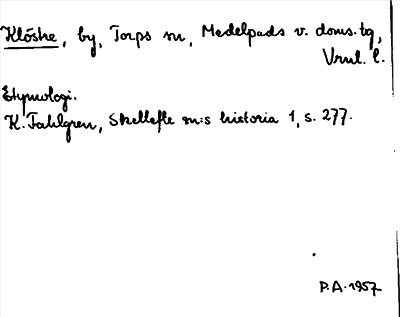 Klöstre, by, Torps sn, Medelpads v. doms. tg,
Vnrl. l.
Etymologi.
K. Fahlgren, Skellefte sn:s historia 1, s. 277.
P.A. 1957